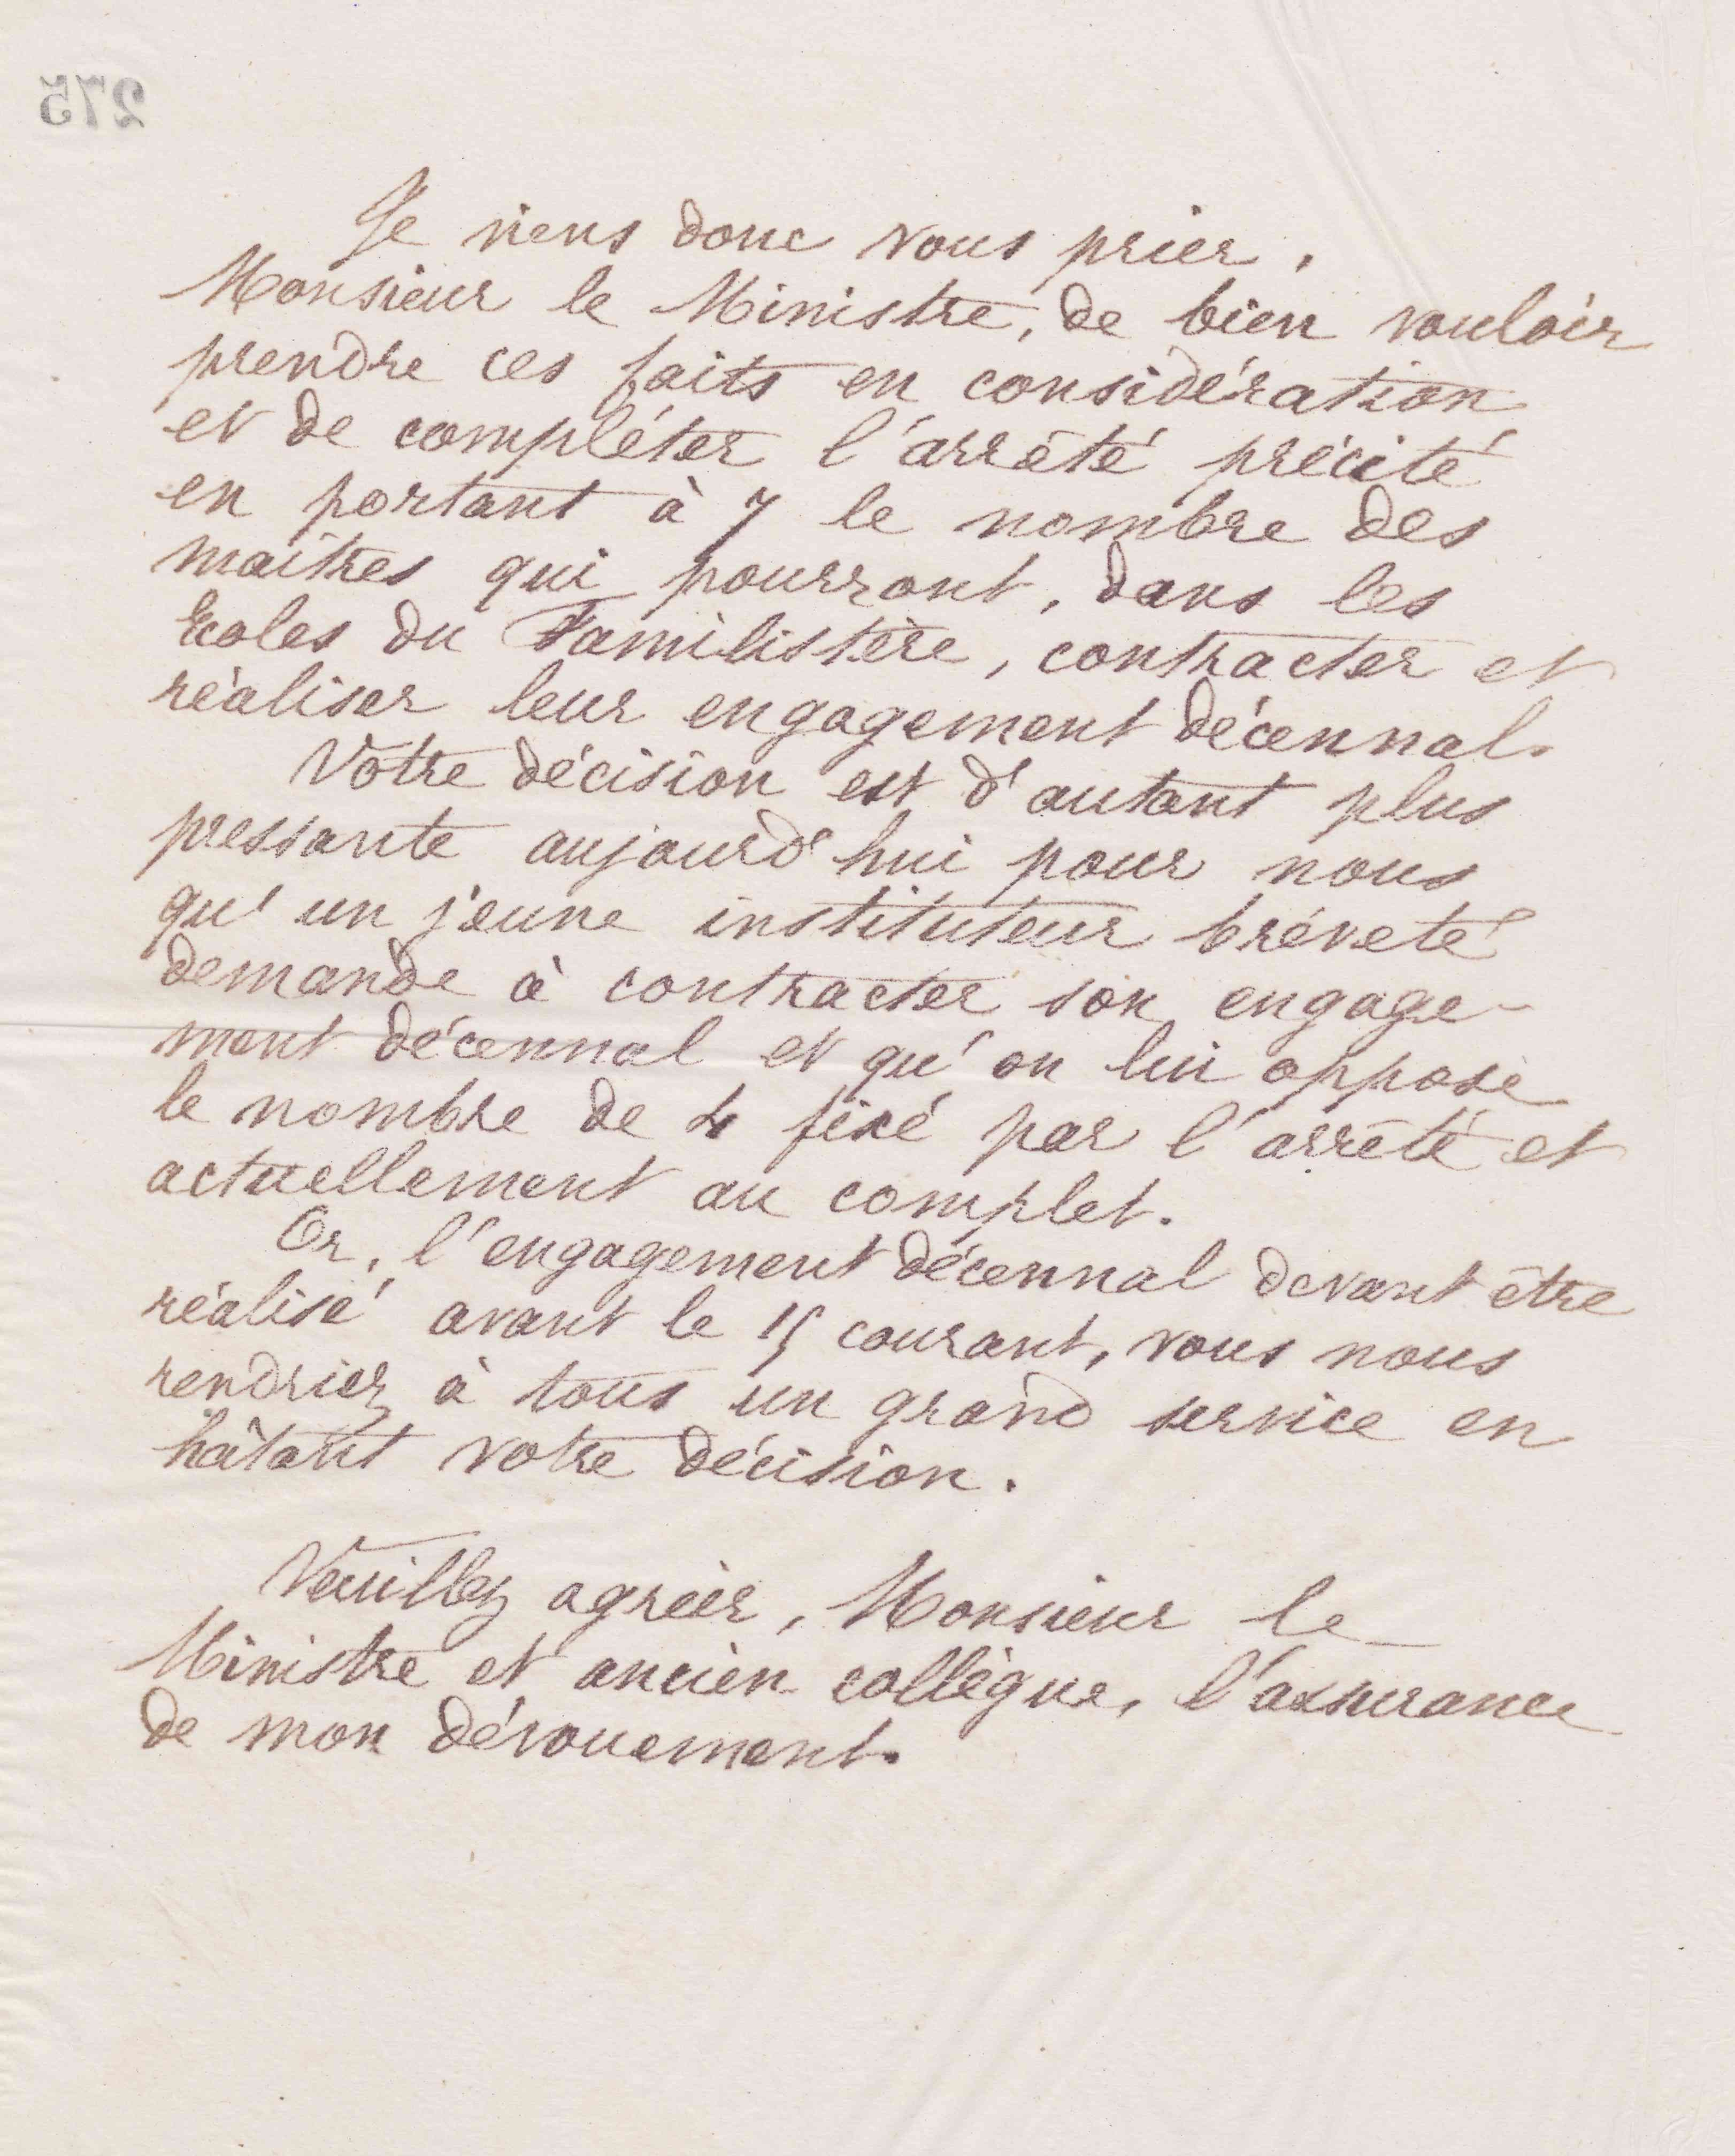 275
Je viens donc vous prier,
Monsieur le Ministre, de bien vouloir
prendre ces faits en considération
et de compléter l'arrêté précité
en portant à 7 le nombre des
maîtres qui pourront, dans les
Écoles du Familistère, contracter et
réaliser leur engagement décennal.
Votre décision est d'autant plus
pressante aujourd'hui pour nous
qu'un jeune instituteur bréveté
demande à contracter son engage-
ment décennal et qu'on lui oppose
le nombre de 4 fixé par l'arrêté et
actuellement au complet.
Or, l'engagement décennal devant être
réalisé avant le 15 courant, vous nous
rendriez à tous un grand service en
hâtant votre décision.
Veuillez agréer, Monsieur le
Ministre et ancien collègue, l'assurance
de mon dévouement.